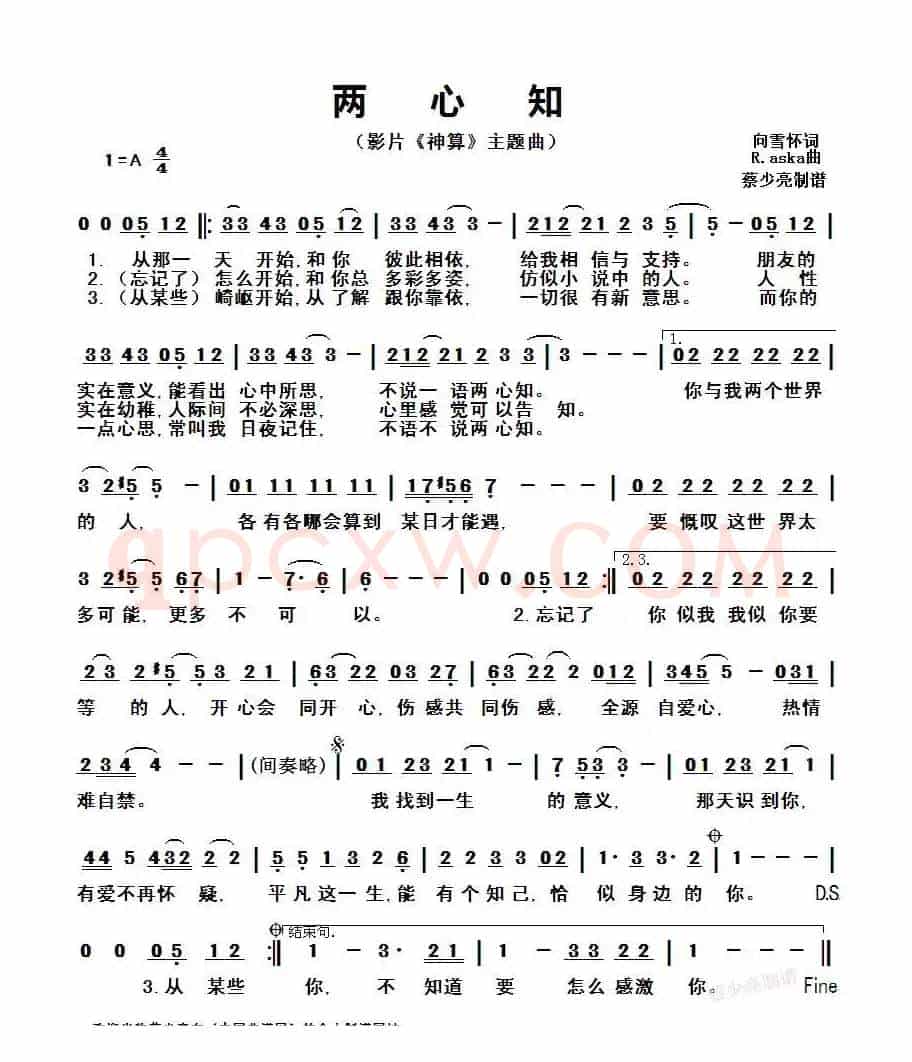 两 心 知
（影片《神算》主题曲）
1=A 4/4
向雪怀词
R.aska曲
蔡少亮制谱
0 0 05 12 ‖: 33 43 05 12 | 33 43 3 - | 212 21 2 3 5 | 5 - 05 12 |
1. 从那一 天 开始,和你 彼此相依, 给我相 信与 支持。 朋友的
2.（忘记了）怎么开始,和你总 多彩多姿, 仿似小 说中 的人。 人 性
3.（从某些）崎岖开始,从了解 跟你靠依, 一切很 有新 意思。 而你的
33 43 05 12 | 33 43 3 - | 212 21 2 3 3 | 3 - - - | 1. 02 22 22 22 |
实在意义,能看出 心中所思, 不说一 语两心知。 你与我两个世界
实在幼稚,人际间 不必深思, 心里感 觉可以告 知。
一点心思,常叫我 日夜记住, 不语不 说两心知。
3 2#5 5 - | 01 11 11 11 | 17#56 7 - - - | 02 22 22 22 |
的 人, 各有各哪会算到 某日才能遇, 要 慨叹这世界太
qpcxw.com
3 2#5 5 67 | 1 - 7· 6 | 6 - - - | 0 0 05 12 :‖ 2.3. 02 22 22 22 |
多可能, 更多 不 可 以。 2.忘记了 你 似我 我似你要
23 2#5 53 21 | 63 22 03 27 | 63 22 2 012 | 345 5 - 031 |
等 的人, 开心会 同开 心,伤感共 同伤 感, 全源 自爱心, 热情
234 4 - - |(间奏略)| 01 23 21 1 - | 7 53 3 - | 01 23 21 1 |
难自禁。 我找到一生 的 意义, 那天识到你,
44 5 432 2 2 | 5 5 1 3 2 6 | 2 2 3 3 02 | 1· 3 3· 2 | 1 - - - |
有爱不再怀 疑, 平凡这一生,能 有个知己,恰 似 身边的 你。 D.S.
0 0 05 12 :‖ 结束句. 1 - 3· 21 | 1 - - 2 | 33 22 1 - | 1 - - - ‖
3.从 某些 你, 不 知道 要 怎么感激 你。 Fine
蔡少亮制谱